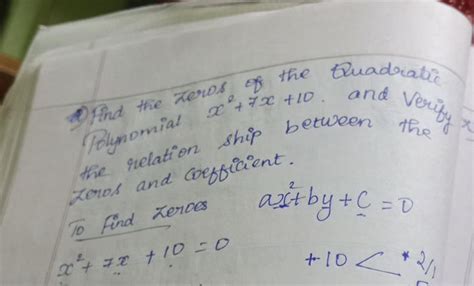 Find the zeros of the Quadratic
Polynomial x²+7x+10. and Verify
the relation ship between the
zeros and coefficient.
To Find zeroes ax²+by+c=0
x²+7x+10=0 +10 < * 2/1